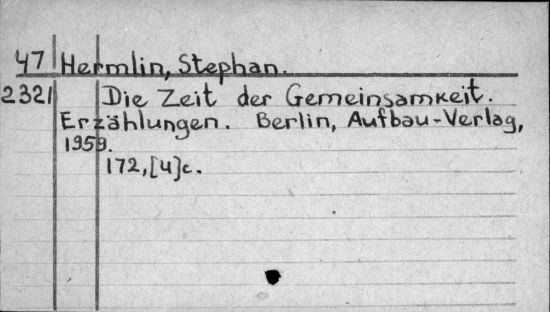 47 Hermlin, Stephan.
2321 Die Zeit der Gemeinsamkeit.
Erzählungen. Berlin, Aufbau-Verlag,
1959.
172,[4]c.